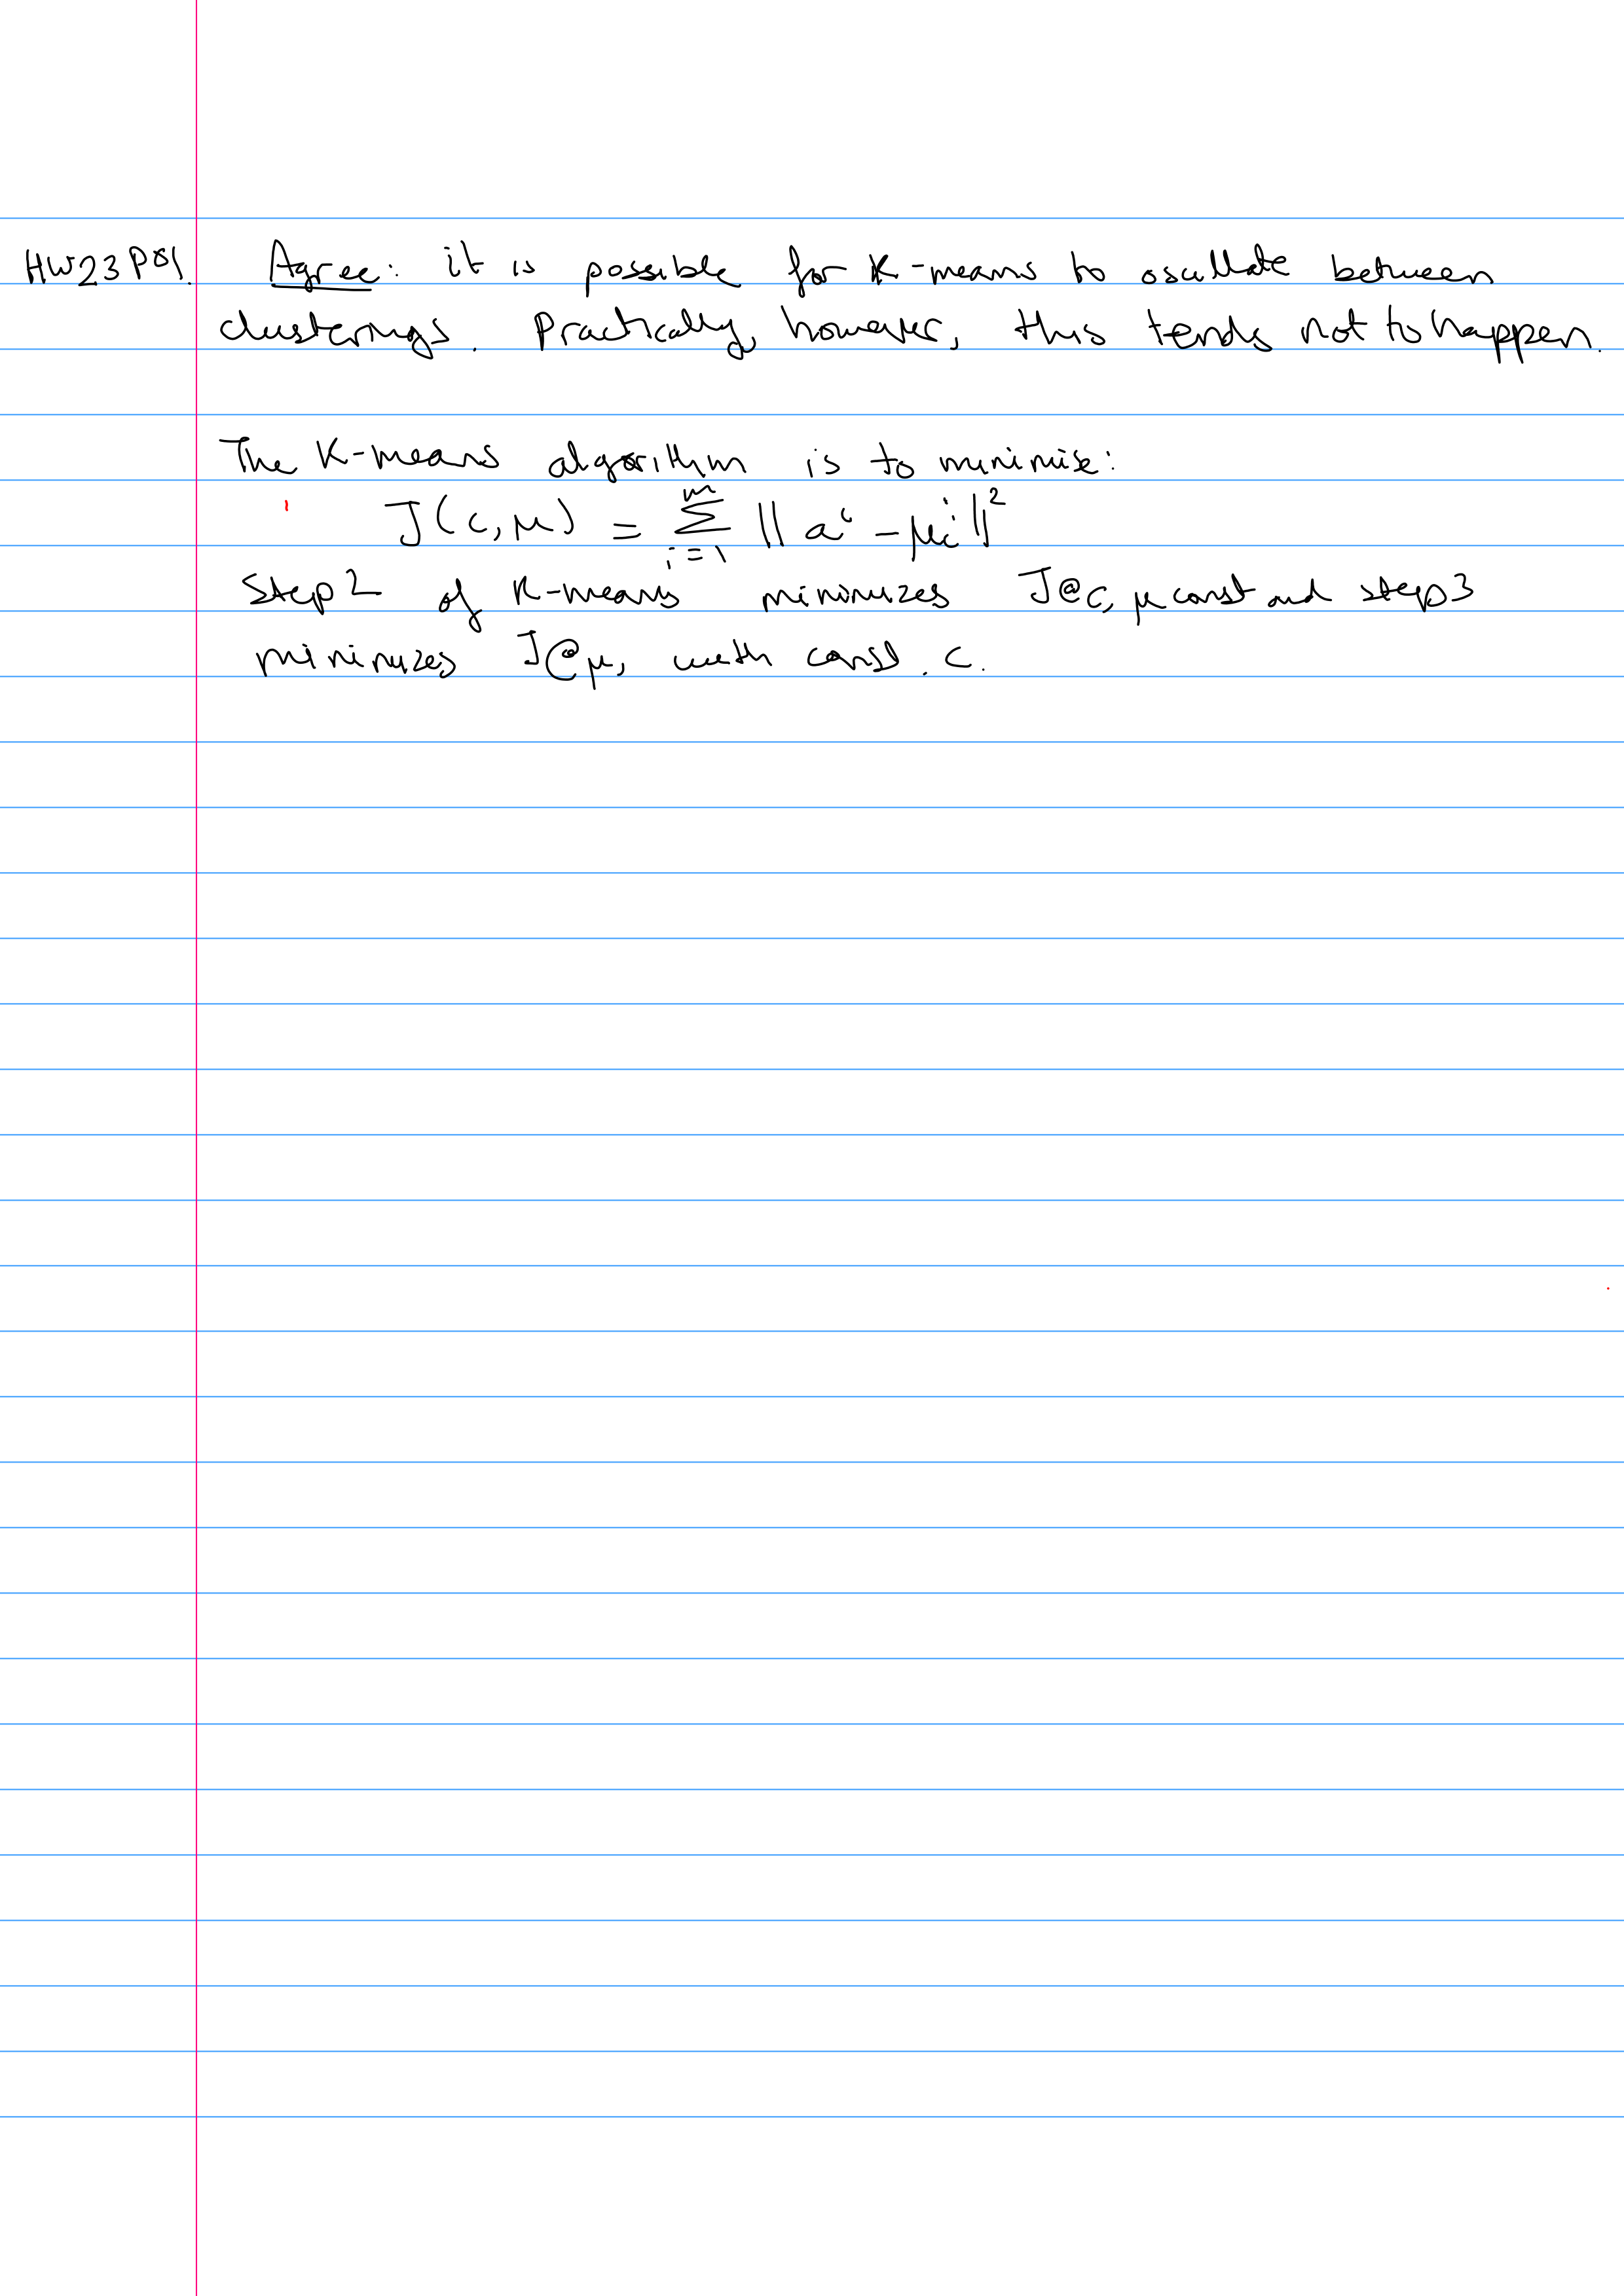 HW23P01. Agree: it is possible for K-means to oscillate between
clusterings. Practically, however, this tends not to happen.
The K-means algorithm is to minimise:
J(c,μ) = Σ_{i=1}^{m} || a^i - μ_c^i ||²
Step 2 of K-means minimizes J@c, μ const and step 3
minimizes J@μ, with const. c.